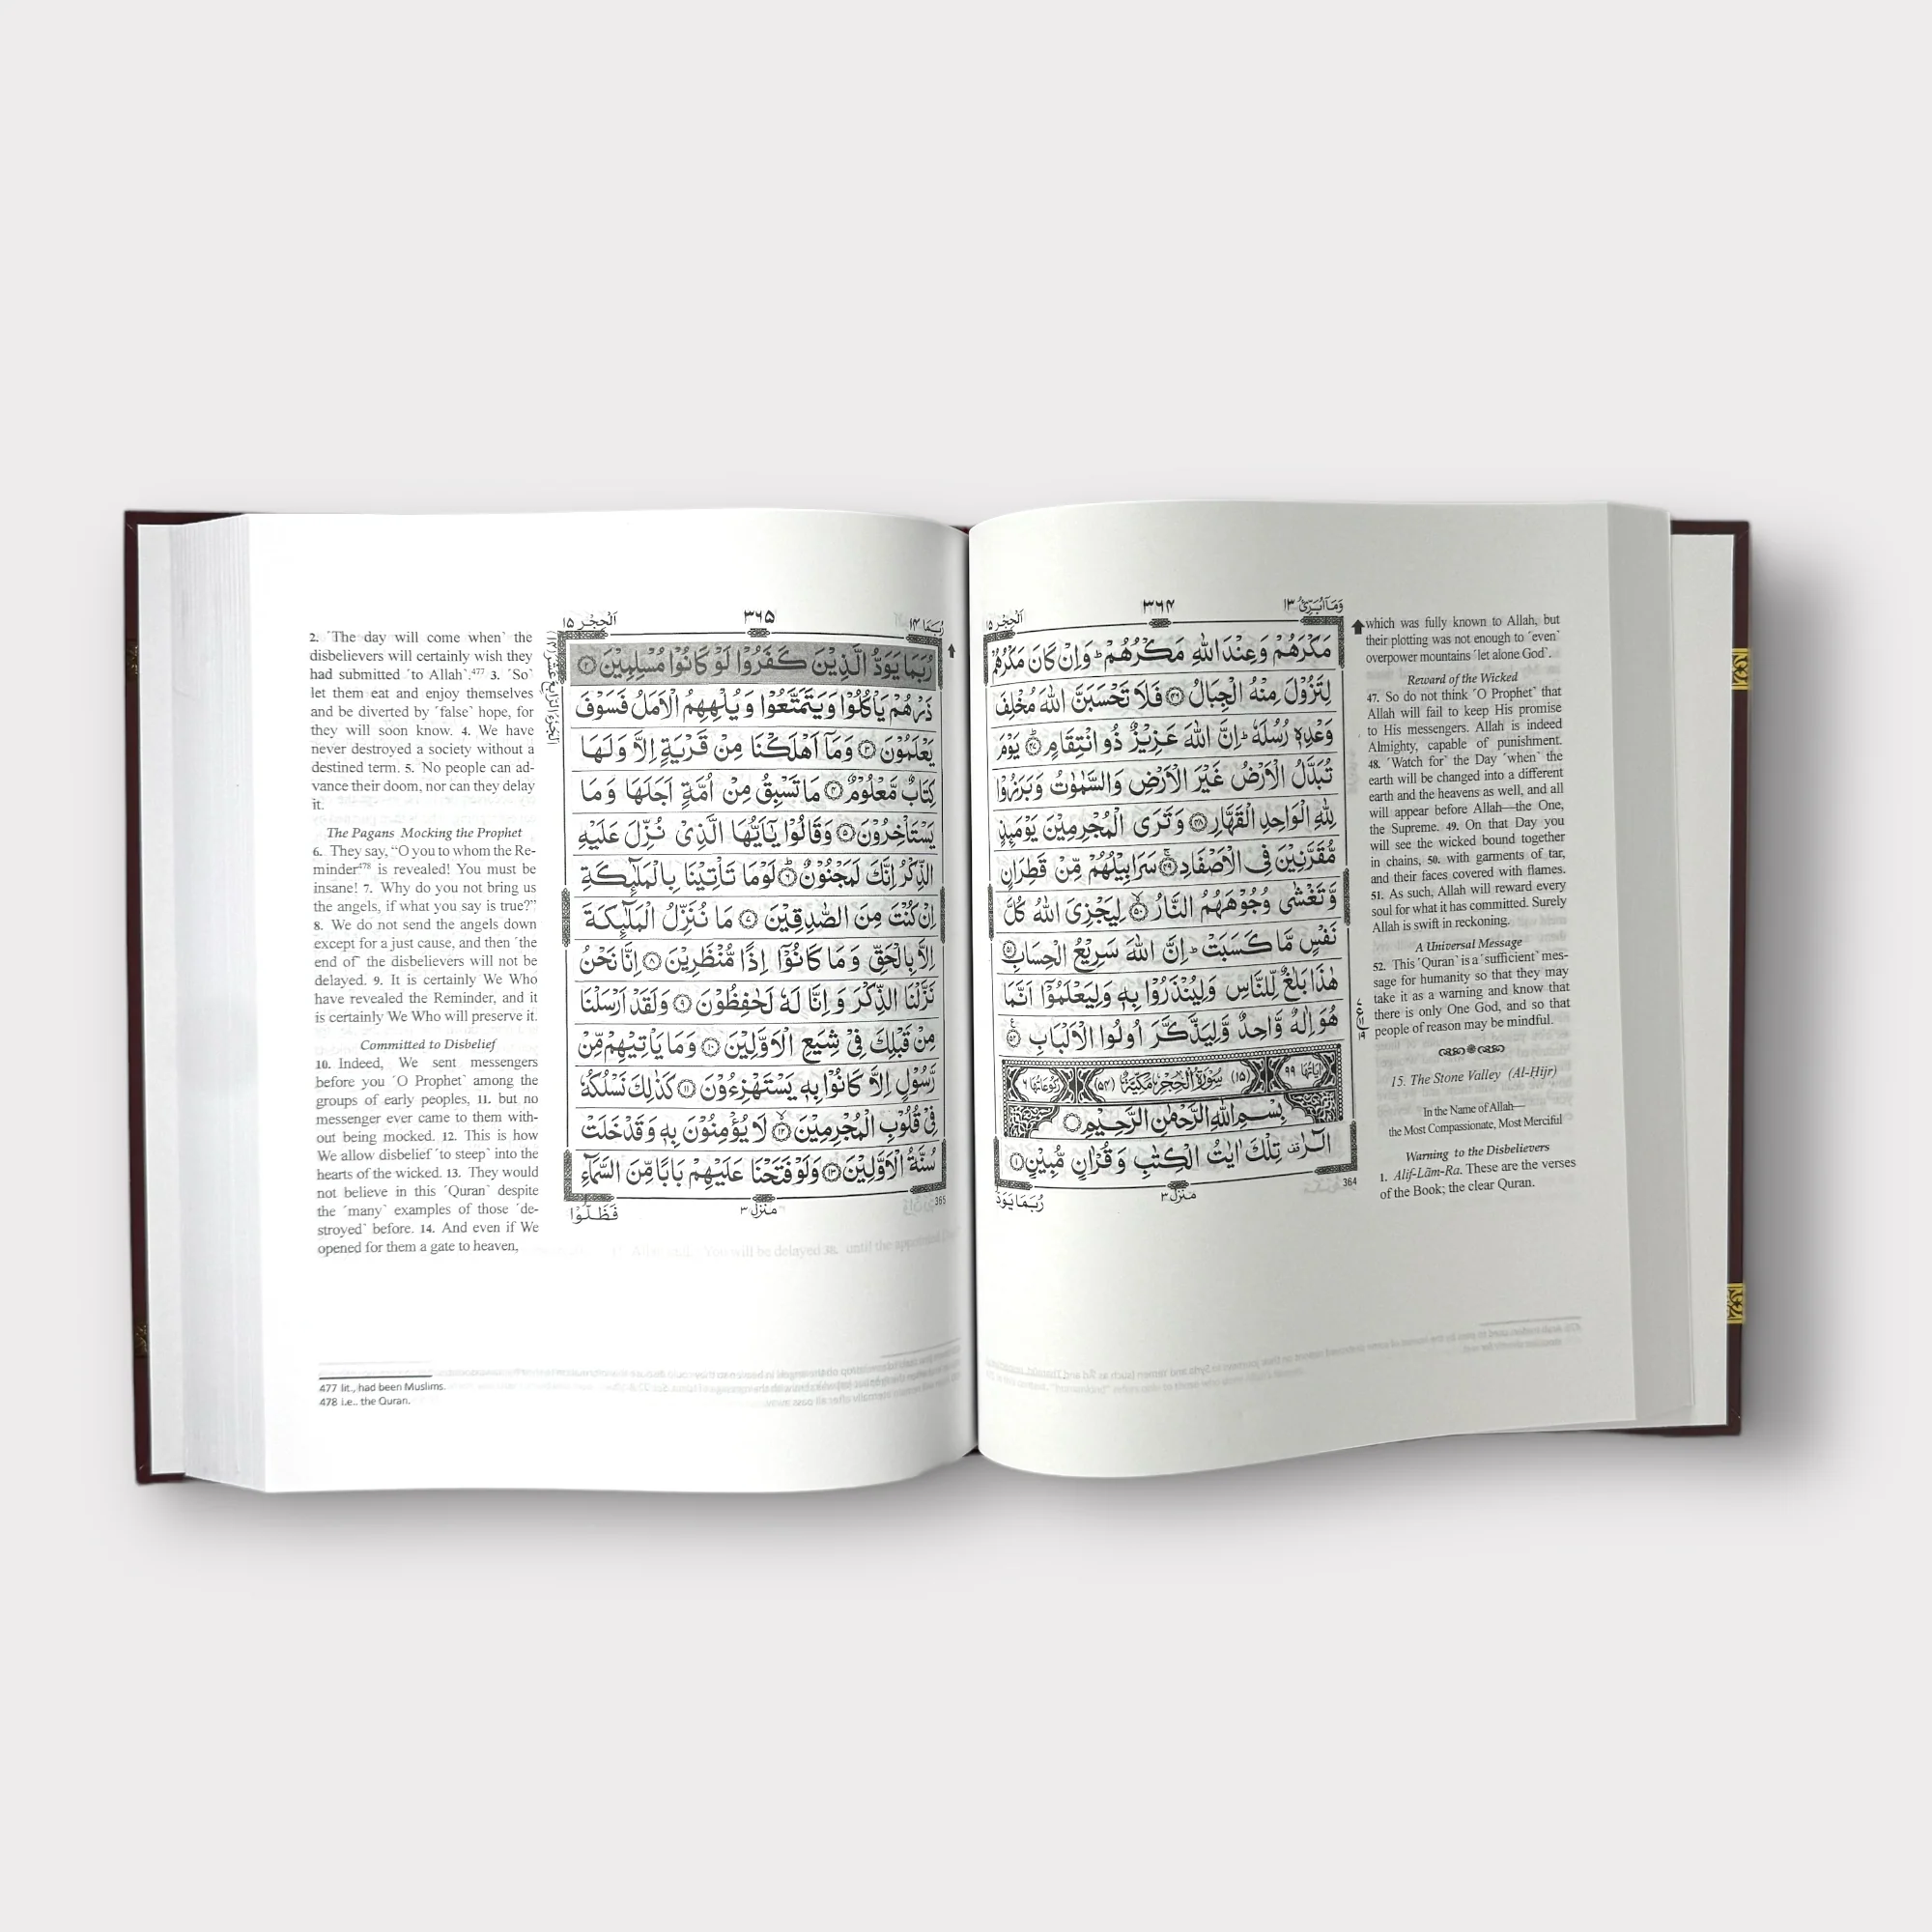 وَمَآ اُبَرِّئُ ١٣
٣٦٤
اَلْحِجْر ١٥
مَكْرَهُمْ وَعِنْدَ اللّٰهِ مَكْرُهُمْ ؕ وَاِنْ كَانَ مَكْرُهُمْ
لِتَزُوْلَ مِنْهُ الْجِبَالُ ﴿٤٦﴾ فَلَا تَحْسَبَنَّ اللّٰهَ مُخْلِفَ
وَعْدِهٖ رُسُلَهٗ ؕ اِنَّ اللّٰهَ عَزِيْزٌ ذُو انْتِقَامٍ ﴿٤٧﴾ يَوْمَ
تُبَدَّلُ الْاَرْضُ غَيْرَ الْاَرْضِ وَالسَّمٰوٰتُ وَبَرَزُوْا
لِلّٰهِ الْوَاحِدِ الْقَهَّارِ ﴿٤٨﴾ وَتَرَى الْمُجْرِمِيْنَ يَوْمَىِٕذٍ
مُّقَرَّنِيْنَ فِى الْاَصْفَادِ ﴿٤٩﴾ سَرَابِيْلُهُمْ مِّنْ قَطِرَانٍ
وَّتَغْشٰى وُجُوْهَهُمُ النَّارُ ﴿٥٠﴾ لِيَجْزِىَ اللّٰهُ كُلَّ
نَفْسٍ مَّا كَسَبَتْ ؕ اِنَّ اللّٰهَ سَرِيْعُ الْحِسَابِ ﴿٥١﴾
هٰذَا بَلٰغٌ لِّلنَّاسِ وَلِيُنْذَرُوْا بِهٖ وَلِيَعْلَمُوْۤا اَنَّمَا
هُوَ اِلٰهٌ وَّاحِدٌ وَّلِيَذَّكَّرَ اُولُوا الْاَلْبَابِ ﴿٥٢﴾
اٰيَاتُهَا ٩٩ (١٥) سُوْرَةُ الْحِجْرِ مَكِّيَّةٌ (٥٤) رُكُوْعَاتُهَا ٦
بِسْمِ اللّٰهِ الرَّحْمٰنِ الرَّحِيْمِ
الٓرٰ تِلْكَ اٰيٰتُ الْكِتٰبِ وَقُرْاٰنٍ مُّبِيْنٍ ﴿١﴾
364
منزل ٣
رُبَمَا يَوَدُّ
which was fully known to Allah, but
their plotting was not enough to ˹even˺
overpower mountains ˹let alone God˺.
Reward of the Wicked
47. So do not think ˹O Prophet˺ that
Allah will fail to keep His promise
to His messengers. Allah is indeed
Almighty, capable of punishment.
48. ˹Watch for˺ the Day ˹when˺ the
earth will be changed into a different
earth and the heavens as well, and all
will appear before Allah—the One,
the Supreme. 49. On that Day you
will see the wicked bound together
in chains, 50. with garments of tar,
and their faces covered with flames.
51. As such, Allah will reward every
soul for what it has committed. Surely
Allah is swift in reckoning.
A Universal Message
52. This ˹Quran˺ is a ˹sufficient˺ mes-
sage for humanity so that they may
take it as a warning and know that
there is only One God, and so that
people of reason may be mindful.
15. The Stone Valley (Al-Ḥijr)
In the Name of Allah—
the Most Compassionate, Most Merciful
Warning to the Disbelievers
1. Alif-Lãm-Ra. These are the verses
of the Book; the clear Quran.
رُبَمَا ١٤
٣٦٥
اَلْحِجْر ١٥
رُبَمَا يَوَدُّ الَّذِيْنَ كَفَرُوْا لَوْ كَانُوْا مُسْلِمِيْنَ ﴿٢﴾
ذَرْهُمْ يَاْكُلُوْا وَيَتَمَتَّعُوْا وَيُلْهِهِمُ الْاَمَلُ فَسَوْفَ
يَعْلَمُوْنَ ﴿٣﴾ وَمَاۤ اَهْلَكْنَا مِنْ قَرْيَةٍ اِلَّا وَلَهَا
كِتَابٌ مَّعْلُوْمٌ ﴿٤﴾ مَا تَسْبِقُ مِنْ اُمَّةٍ اَجَلَهَا وَمَا
يَسْتَاْخِرُوْنَ ﴿٥﴾ وَقَالُوْا يٰۤاَيُّهَا الَّذِىْ نُزِّلَ عَلَيْهِ
الذِّكْرُ اِنَّكَ لَمَجْنُوْنٌ ﴿٦﴾ لَوْ مَا تَاْتِيْنَا بِالْمَلٰٓىِٕكَةِ
اِنْ كُنْتَ مِنَ الصّٰدِقِيْنَ ﴿٧﴾ مَا نُنَزِّلُ الْمَلٰٓىِٕكَةَ
اِلَّا بِالْحَقِّ وَمَا كَانُوْۤا اِذًا مُّنْظَرِيْنَ ﴿٨﴾ اِنَّا نَحْنُ
نَزَّلْنَا الذِّكْرَ وَاِنَّا لَهٗ لَحٰفِظُوْنَ ﴿٩﴾ وَلَقَدْ اَرْسَلْنَا
مِنْ قَبْلِكَ فِىْ شِيَعِ الْاَوَّلِيْنَ ﴿١٠﴾ وَمَا يَاْتِيْهِمْ مِّنْ
رَّسُوْلٍ اِلَّا كَانُوْا بِهٖ يَسْتَهْزِءُوْنَ ﴿١١﴾ كَذٰلِكَ نَسْلُكُهٗ
فِىْ قُلُوْبِ الْمُجْرِمِيْنَ ﴿١٢﴾ لَا يُؤْمِنُوْنَ بِهٖ وَقَدْ خَلَتْ
سُنَّةُ الْاَوَّلِيْنَ ﴿١٣﴾ وَلَوْ فَتَحْنَا عَلَيْهِمْ بَابًا مِّنَ السَّمَآءِ
365
منزل ٣
فَظَلُّوْا
اَلْجُزْءُ الرَّابِعَ عَشَرَ (١٤)
2. ˹The day will come when˺ the
disbelievers will certainly wish they
had submitted ˹to Allah˺.477 3. ˹So˺
let them eat and enjoy themselves
and be diverted by ˹false˺ hope, for
they will soon know. 4. We have
never destroyed a society without a
destined term. 5. No people can ad-
vance their doom, nor can they delay
it.
The Pagans Mocking the Prophet
6. They say, “O you to whom the Re-
minder478 is revealed! You must be
insane! 7. Why do you not bring us
the angels, if what you say is true?”
8. We do not send the angels down
except for a just cause, and then ˹the
end of˺ the disbelievers will not be
delayed. 9. It is certainly We Who
have revealed the Reminder, and it
is certainly We Who will preserve it.
Committed to Disbelief
10. Indeed, We sent messengers
before you ˹O Prophet˺ among the
groups of early peoples, 11. but no
messenger ever came to them with-
out being mocked. 12. This is how
We allow disbelief ˹to steep˺ into the
hearts of the wicked. 13. They would
not believe in this ˹Quran˺ despite
the ˹many˺ examples of those ˹de-
stroyed˺ before. 14. And even if We
opened for them a gate to heaven,
477 lit., had been Muslims.
478 i.e.. the Quran.